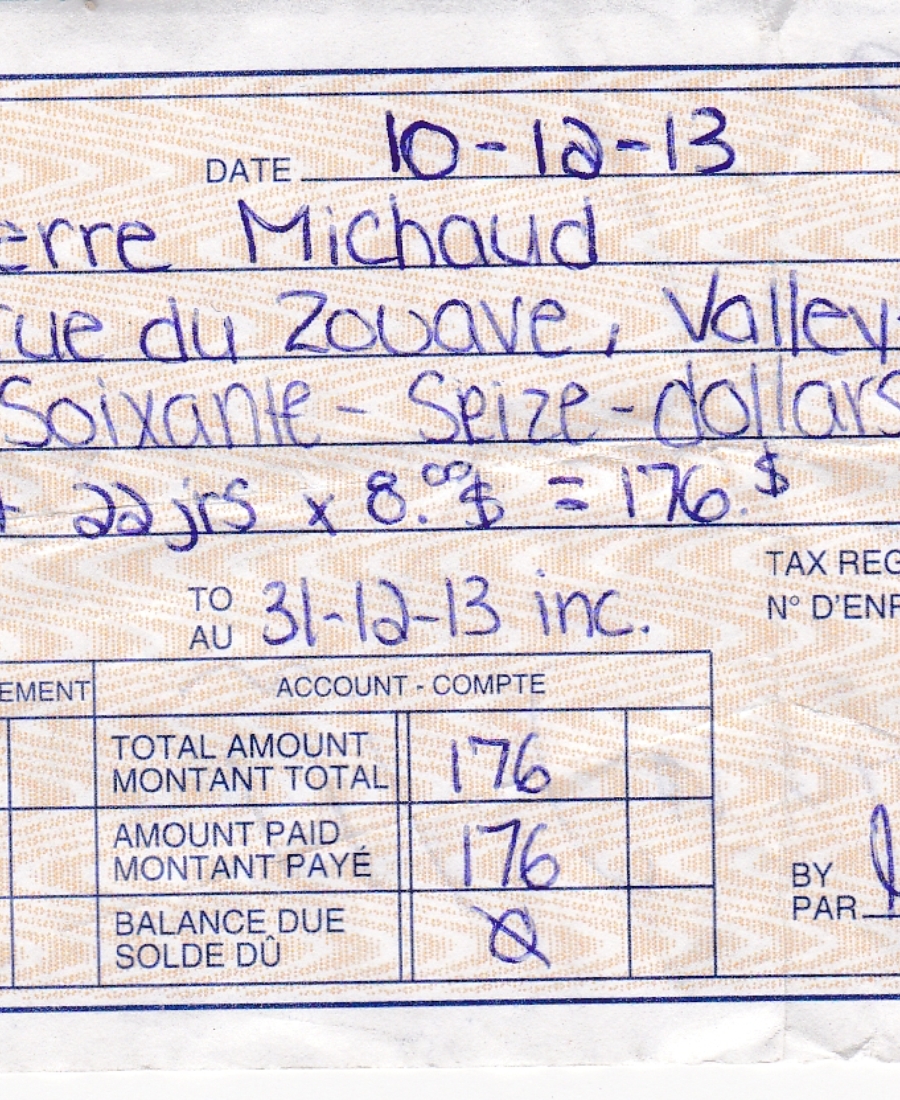 DATE 10-12-13
erre Michaud
rue du Zouave, Valley
Soixante-Seize-dollars
22jrs x 8.00$ = 176.$
TAX REG
TO 31-12-13 inc.
AU
N° D'ENR
EMENT ACCOUNT - COMPTE
TOTAL AMOUNT 176
MONTANT TOTAL
AMOUNT PAID 176
MONTANT PAYÉ
BY
PAR
BALANCE DUE 0
SOLDE DÛ